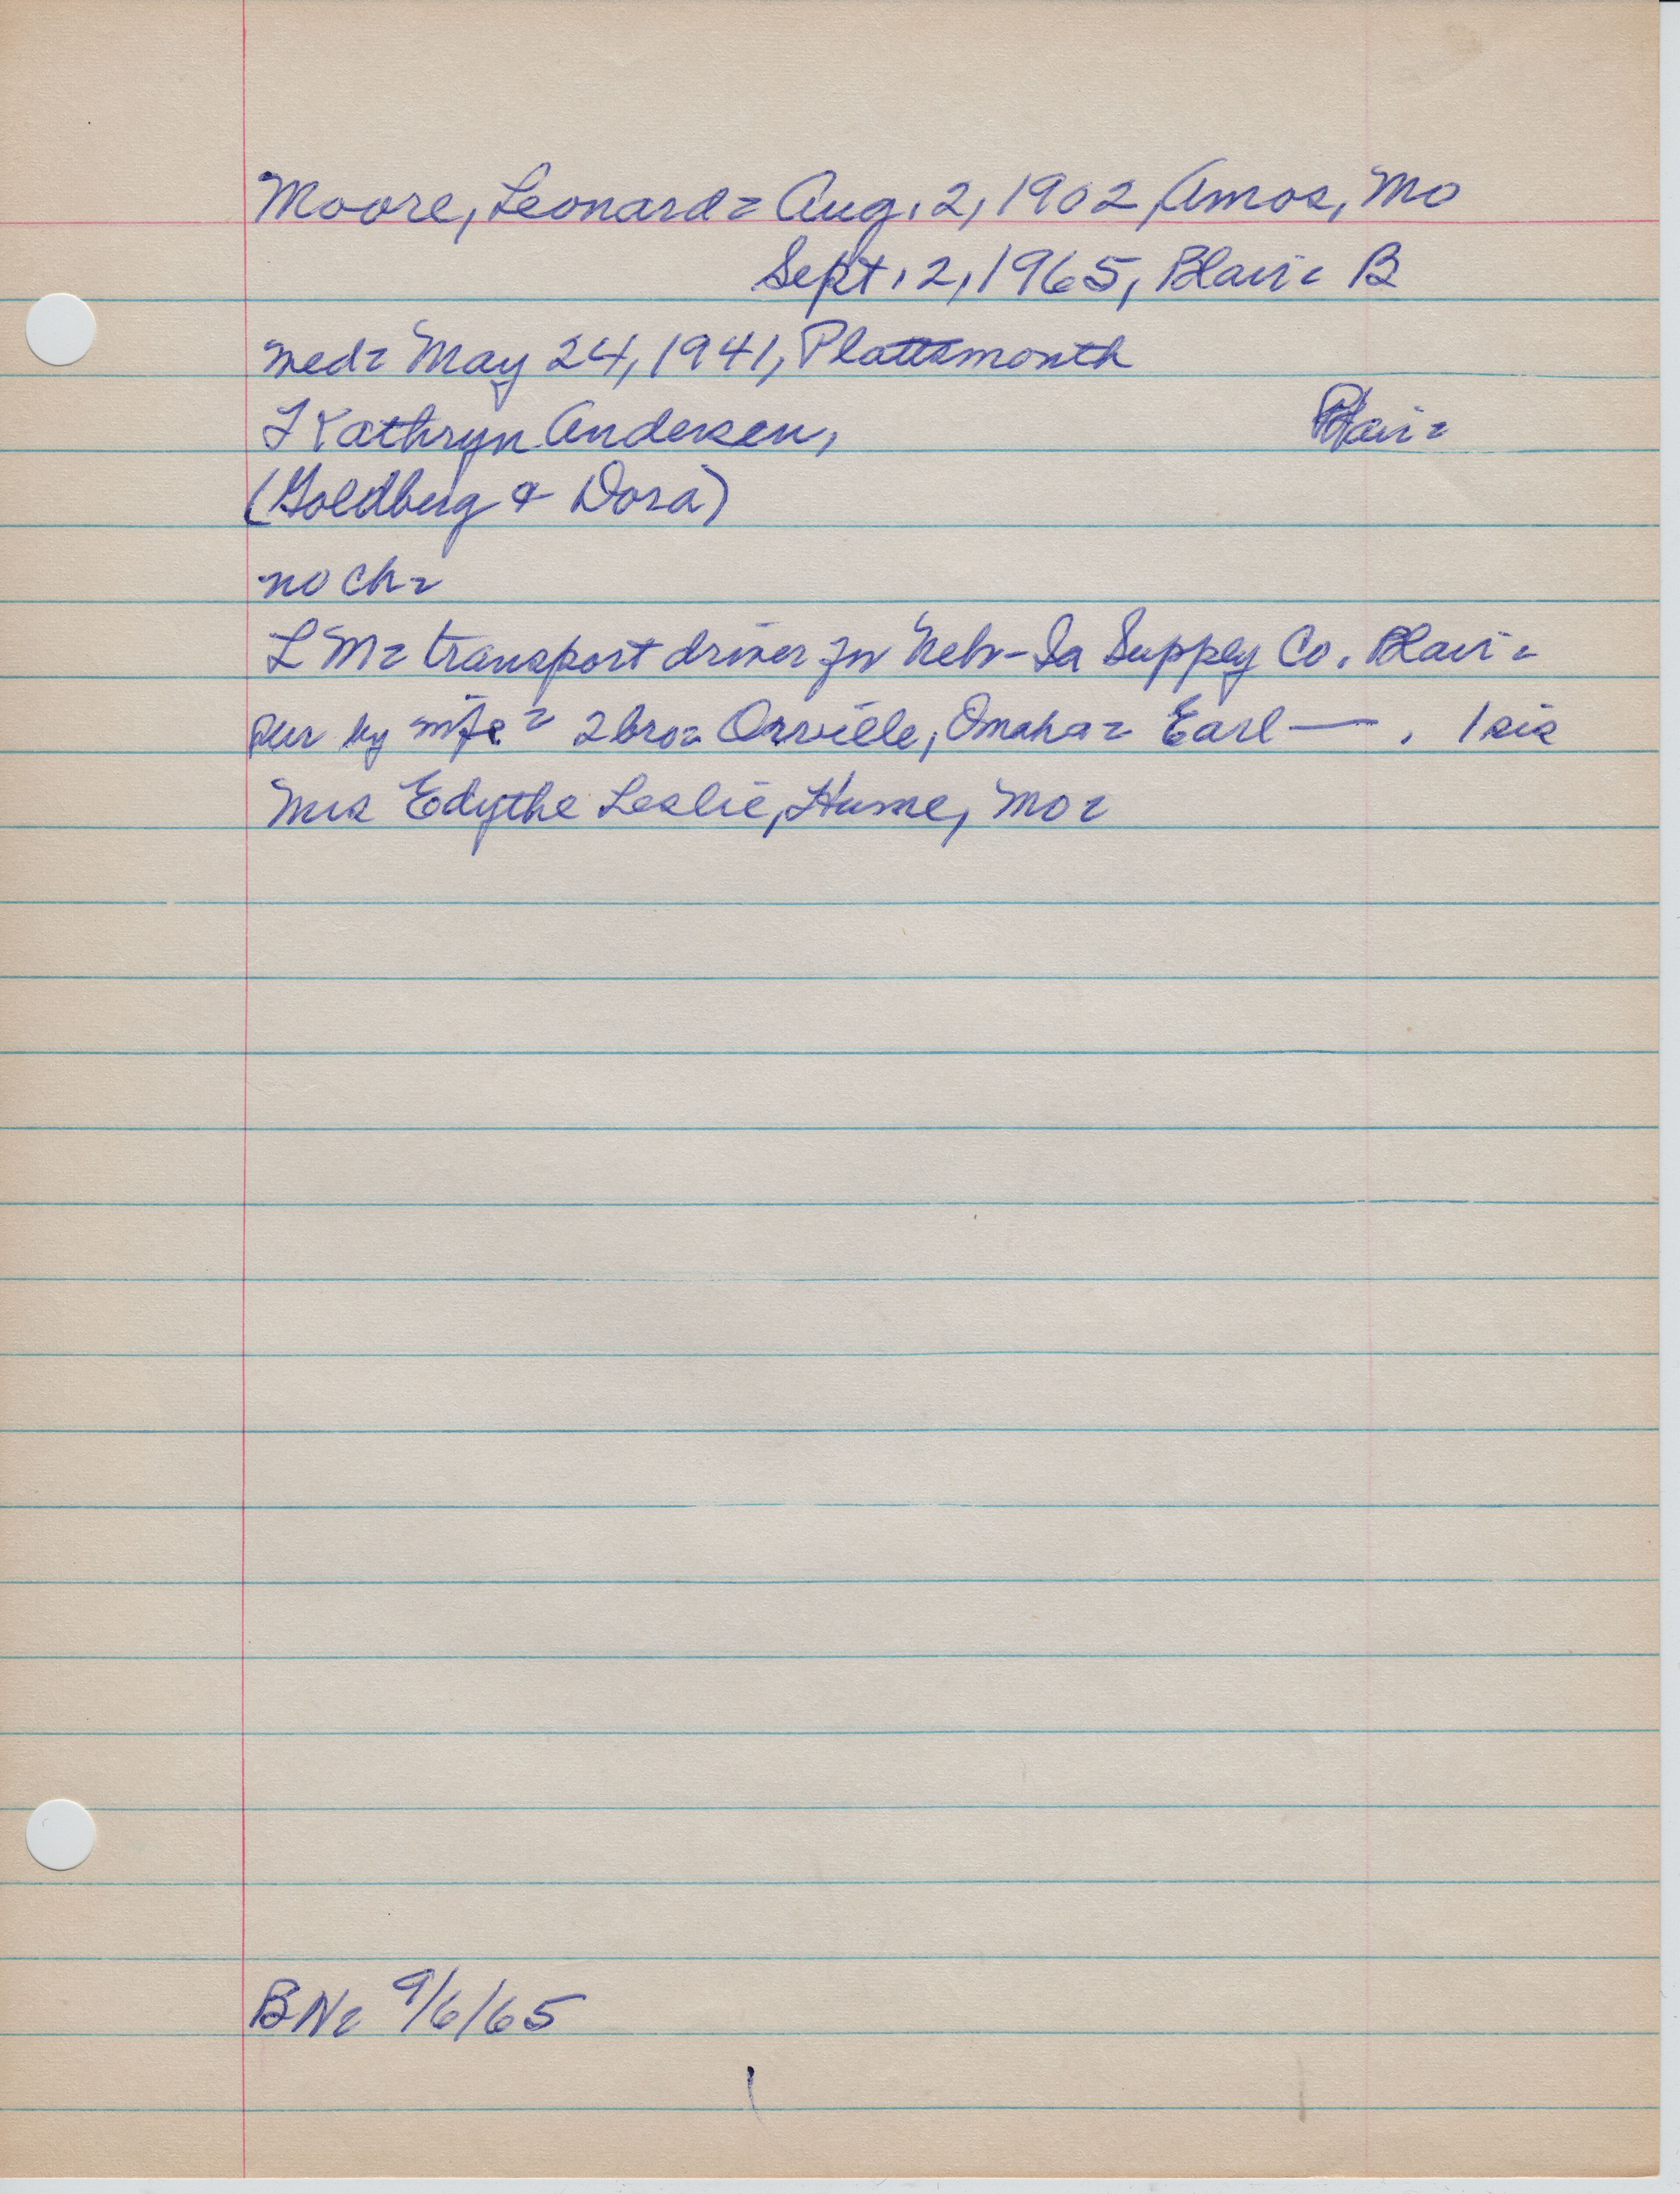 Moore, Leonard= Aug. 2, 1902, Amos, Mo
Sept. 2, 1965, Blair= B
med= May 24, 1941, Plattsmouth
Kathryn Andersen, Blair=
(Goldberg & Dora)
no ch=
LM= transport driver for Neb-Ia Supply Co. Blair=
sur by wife= 2 bro= Orville, Omaha= Earl — . 1 sis
Mrs Edythe Leslie, Hume, Mo=
BN= 9/6/65